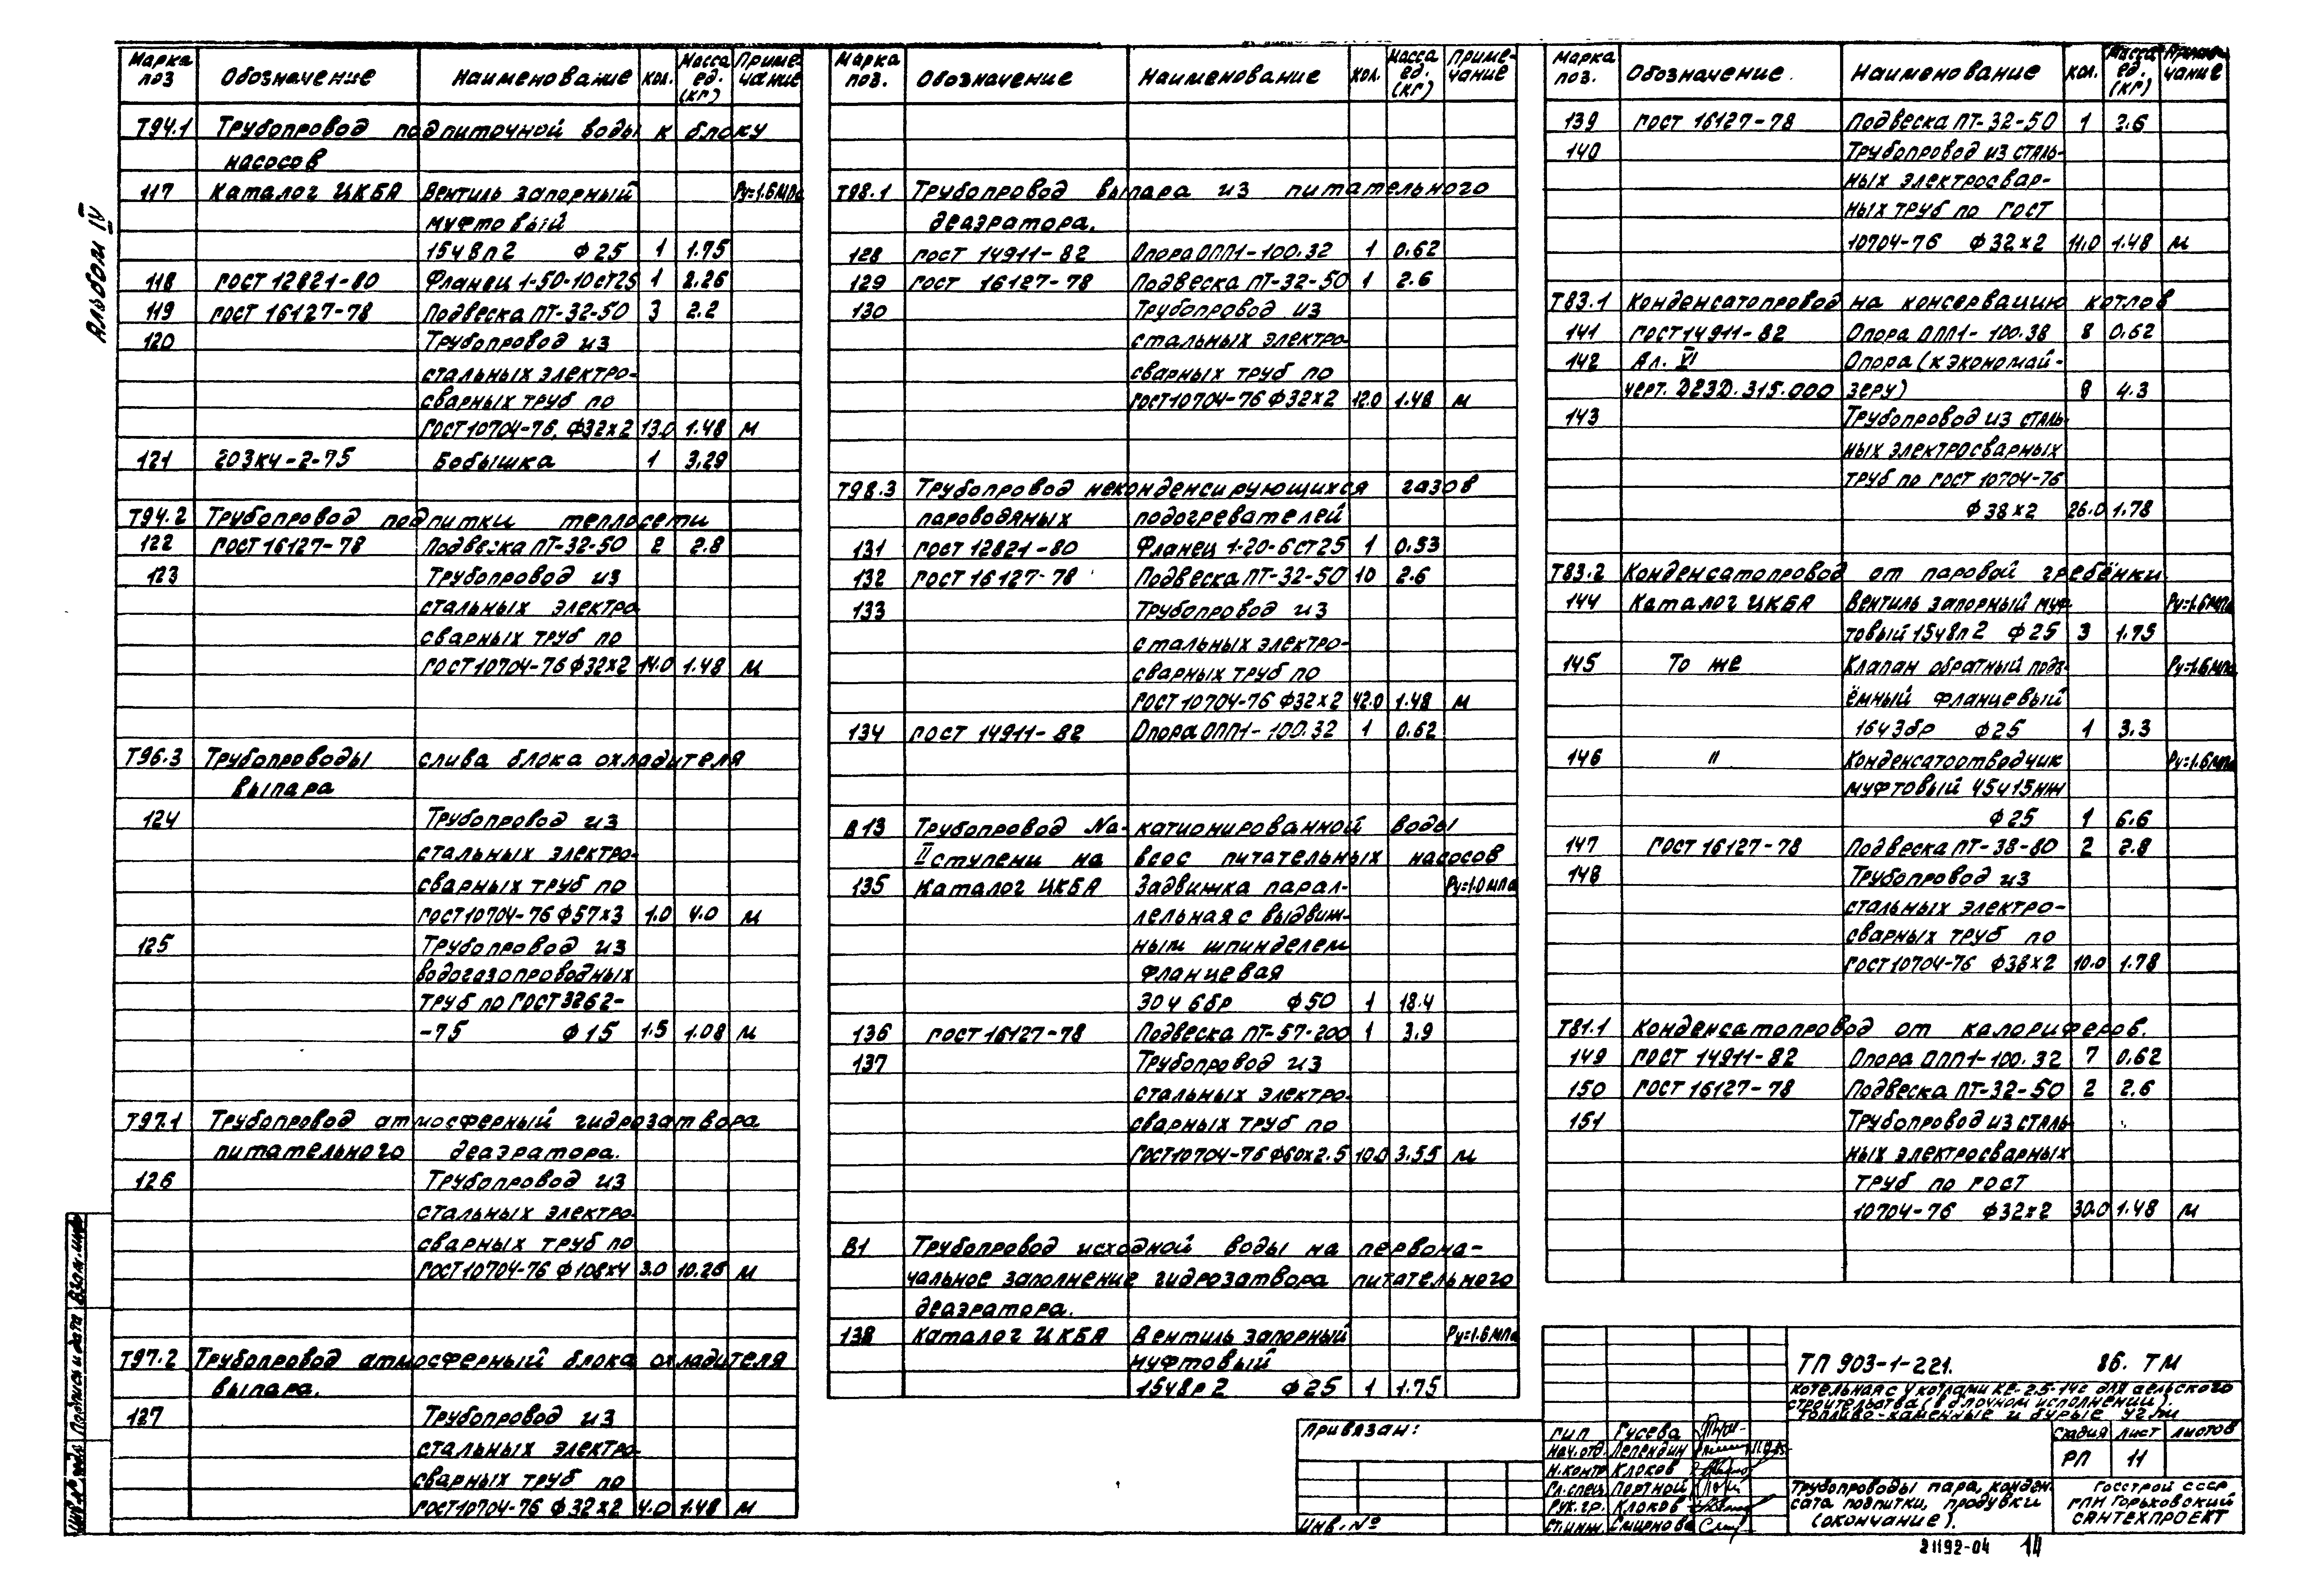 Альбом IV
Марка поз Обозначение Наименование кол. Масса ед. (кг) Примечание
Т94.1 Трубопровод подпиточной воды к блоку
насосов
117 Каталог ЦКБА Вентиль запорный Ру=1.6мпа
муфтовый
15ч8п2 ф25 1 1.75
118 ГОСТ 12821-80 Фланец 1-50-10ст25 1 2.26
119 ГОСТ 16127-78 Подвеска ПТ-32-50 3 2.2
120 Трубопровод из
стальных электро-
сварных труб по
ГОСТ10704-76. ф32х2 13.0 1.48 м
121 203КЧ-2-75 Бобышка 1 3.29
Т94.2 Трубопровод подпитки теплосети
122 ГОСТ16127-78 Подвеска ПТ-32-50 2 2.8
123 Трубопровод из
стальных электро
сварных труб по
ГОСТ10704-76 ф32х2 14.0 1.48 м
Т96.3 Трубопроводы слива блока охладителя
выпара
124 Трубопровод из
стальных электро-
сварных труб по
ГОСТ10704-76 ф57х3 1.0 4.0 м
125 Трубопровод из
водогазопроводных
труб по ГОСТ3262-
-75 ф15 1.5 1.08 м
Т97.1 Трубопровод атмосферный гидрозатвора
питательного деаэратора.
126 Трубопровод из
стальных электро-
сварных труб по
ГОСТ10704-76 ф108х4 3.0 10.26 м
Т97.2 Трубопровод атмосферный блока охладителя
выпара.
127 Трубопровод из
стальных электро
сварных труб по
ГОСТ10704-76 ф32х2 4.0 1.48 м
Марка поз. Обозначение Наименование кол. Масса ед. (кг) Примечание
Т98.1 Трубопровод выпара из питательного
деаэратора.
128 ГОСТ 14911-82 Опора ОПП1-100.32 1 0.62
129 ГОСТ 16127-78 Подвеска ПТ-32-50 1 2.6
130 Трубопровод из
стальных электро
сварных труб по
ГОСТ10704-76 ф32х2 12.0 1.48 м
Т98.3 Трубопровод неконденсирующихся газов
пароводяных подогревателей
131 ГОСТ 12821-80 Фланец 1-20-6ст25 1 0.53
132 ГОСТ 16127-78 Подвеска ПТ-32-50 10 2.6
133 Трубопровод из
стальных электро-
сварных труб по
ГОСТ10704-76 ф32х2 42.0 1.48 м
134 ГОСТ 14911-82 Опора ОПП1-100.32 1 0.62
В13 Трубопровод Na-катионированной воды
II ступени на всос питательных насосов
135 Каталог ЦКБА Задвижка парал- Ру=1.0мпа
лельная с выдвиж-
ным шпинделем
фланцевая
30ч6бр ф50 1 18.4
136 ГОСТ 16127-78 Подвеска ПТ-57-200 1 3.9
137 Трубопровод из
стальных электро-
сварных труб по
ГОСТ10704-76 ф60х2.5 10.0 3.55 м
В1 Трубопровод исходной воды на первона-
чальное заполнение гидрозатвора питательного
деаэратора.
138 Каталог ЦКБА Вентиль запорный Ру=1.6мпа
муфтовый
15ч8р2 ф25 1 1.75
Марка поз. Обозначение Наименование кол. Масса ед. (кг) Примечание
139 ГОСТ 16127-78 Подвеска ПТ-32-50 1 2.6
140 Трубопровод из сталь-
ных электросвар-
ных труб по ГОСТ
10704-76 ф32х2 11.0 1.48 м
Т83.1 Конденсатопровод на консервацию котлов
141 ГОСТ14911-82 Опора ОПП1-100.38 8 0.62
142 Ал. VI Опора (к экономай-
черт. Д23Д.315.000 зеру) 8 4.3
143 Трубопровод из сталь
ных электросварных
труб по ГОСТ 10704-76
ф38х2 26.0 1.78
Т83.2 Конденсатопровод от паровой гребёнки
144 Каталог ЦКБА Вентиль запорный муф- Ру=1.6мпа
товый 15ч8п2 ф25 3 1.75
145 То же Клапан обратный подъ- Ру=1.6мпа
ёмный фланцевый
16ч3бр ф25 1 3.3
146 " Конденсатоотводчик Ру=1.6мпа
муфтовый 45ч15нж
ф25 1 6.6
147 ГОСТ 16127-78 Подвеска ПТ-38-80 2 2.8
148 Трубопровод из
стальных электро-
сварных труб по
ГОСТ10704-76 ф38х2 10.0 1.78
Т81.1 Конденсатопровод от калориферов.
149 ГОСТ 14911-82 Опора ОПП1-100.32 7 0.62
150 ГОСТ 16127-78 Подвеска ПТ-32-50 2 2.6
151 Трубопровод из сталь
ных электросварных
труб по ГОСТ
10704-76 ф32х2 30.0 1.48 м
Привязан:
Инв. №
ТП 903-1-221. 86. ТМ
Котельная с 4 котлами КЕ-2.5-14с для сельского
строительства (в блочном исполнении).
Топливо-каменные и бурые угли
ГИП Гусева
Нач.отд. Лепендин
Н.контр Клоков
Гл.спец Портной
Рук.гр. Клоков
Ст.инж. Смирнова
Стадия Лист Листов
РП 11
Трубопроводы пара, конден-
сата подпитки, продувки
(окончание).
Госстрой СССР
ГПИ Горьковский
Сантехпроект
Инв.№ подл. Подпись и дата Взам.инв.
21192-04 14